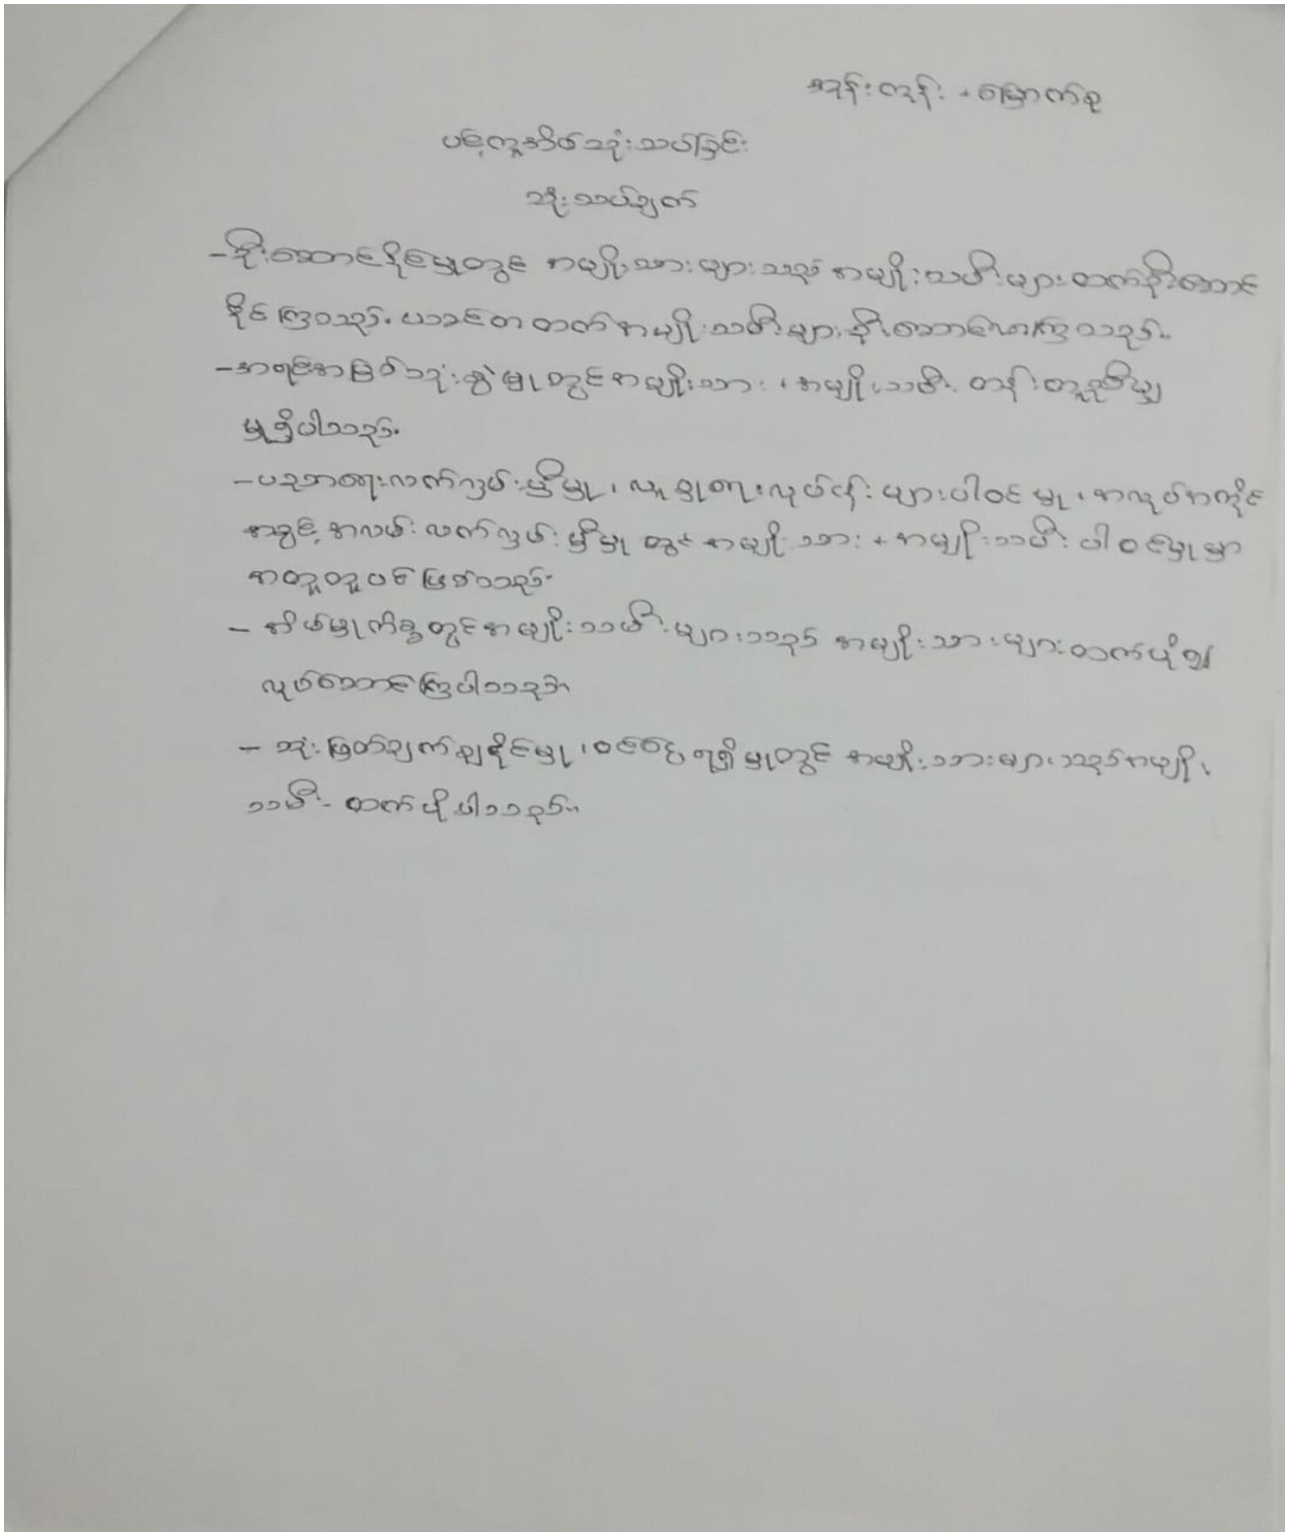 အုန်းကုန်း + မြောက်စု
ပင့်ကူအိမ်သုံးသပ်ခြင်း
သုံးသပ်ချက်
- ဦးဆောင်နိုင်မှုတွင် အမျိုးသားများသည် အမျိုးသမီးများထက်ဦးဆောင်
နိုင်ကြသည်. ယခင်ကထက်အမျိုးသမီးများဦးဆောင်လာကြသည်။
- အရင်းအမြစ်သုံးစွဲမှုတွင်အမျိုးသား ၊ အမျိုးသမီး တန်းတူညီမျှ
မှုရှိပါသည်.
- ပညာရေးလက်လှမ်းမှီမှု ၊ လူမှုရေးလုပ်ငန်းများပါဝင်မှု ၊ အလုပ်အကိုင်
အခွင့်အလမ်းလက်လှမ်းမှီမှုတွင် အမျိုးသား + အမျိုးသမီး ပါဝင်မှုမှာ
အတူတူပင်ဖြစ်သည်.
- အိမ်မှုကိစ္စတွင်အမျိုးသမီးများသည် အမျိုးသားများထက်ပို၍
လုပ်ဆောင်ကြပါသည်။
- ဆုံးဖြတ်ချက်ချနိုင်မှု ၊ ဝင်ငွေရရှိမှုတွင် အမျိုးသားများသည်အမျိုး
သမီးထက်ပိုပါသည်။